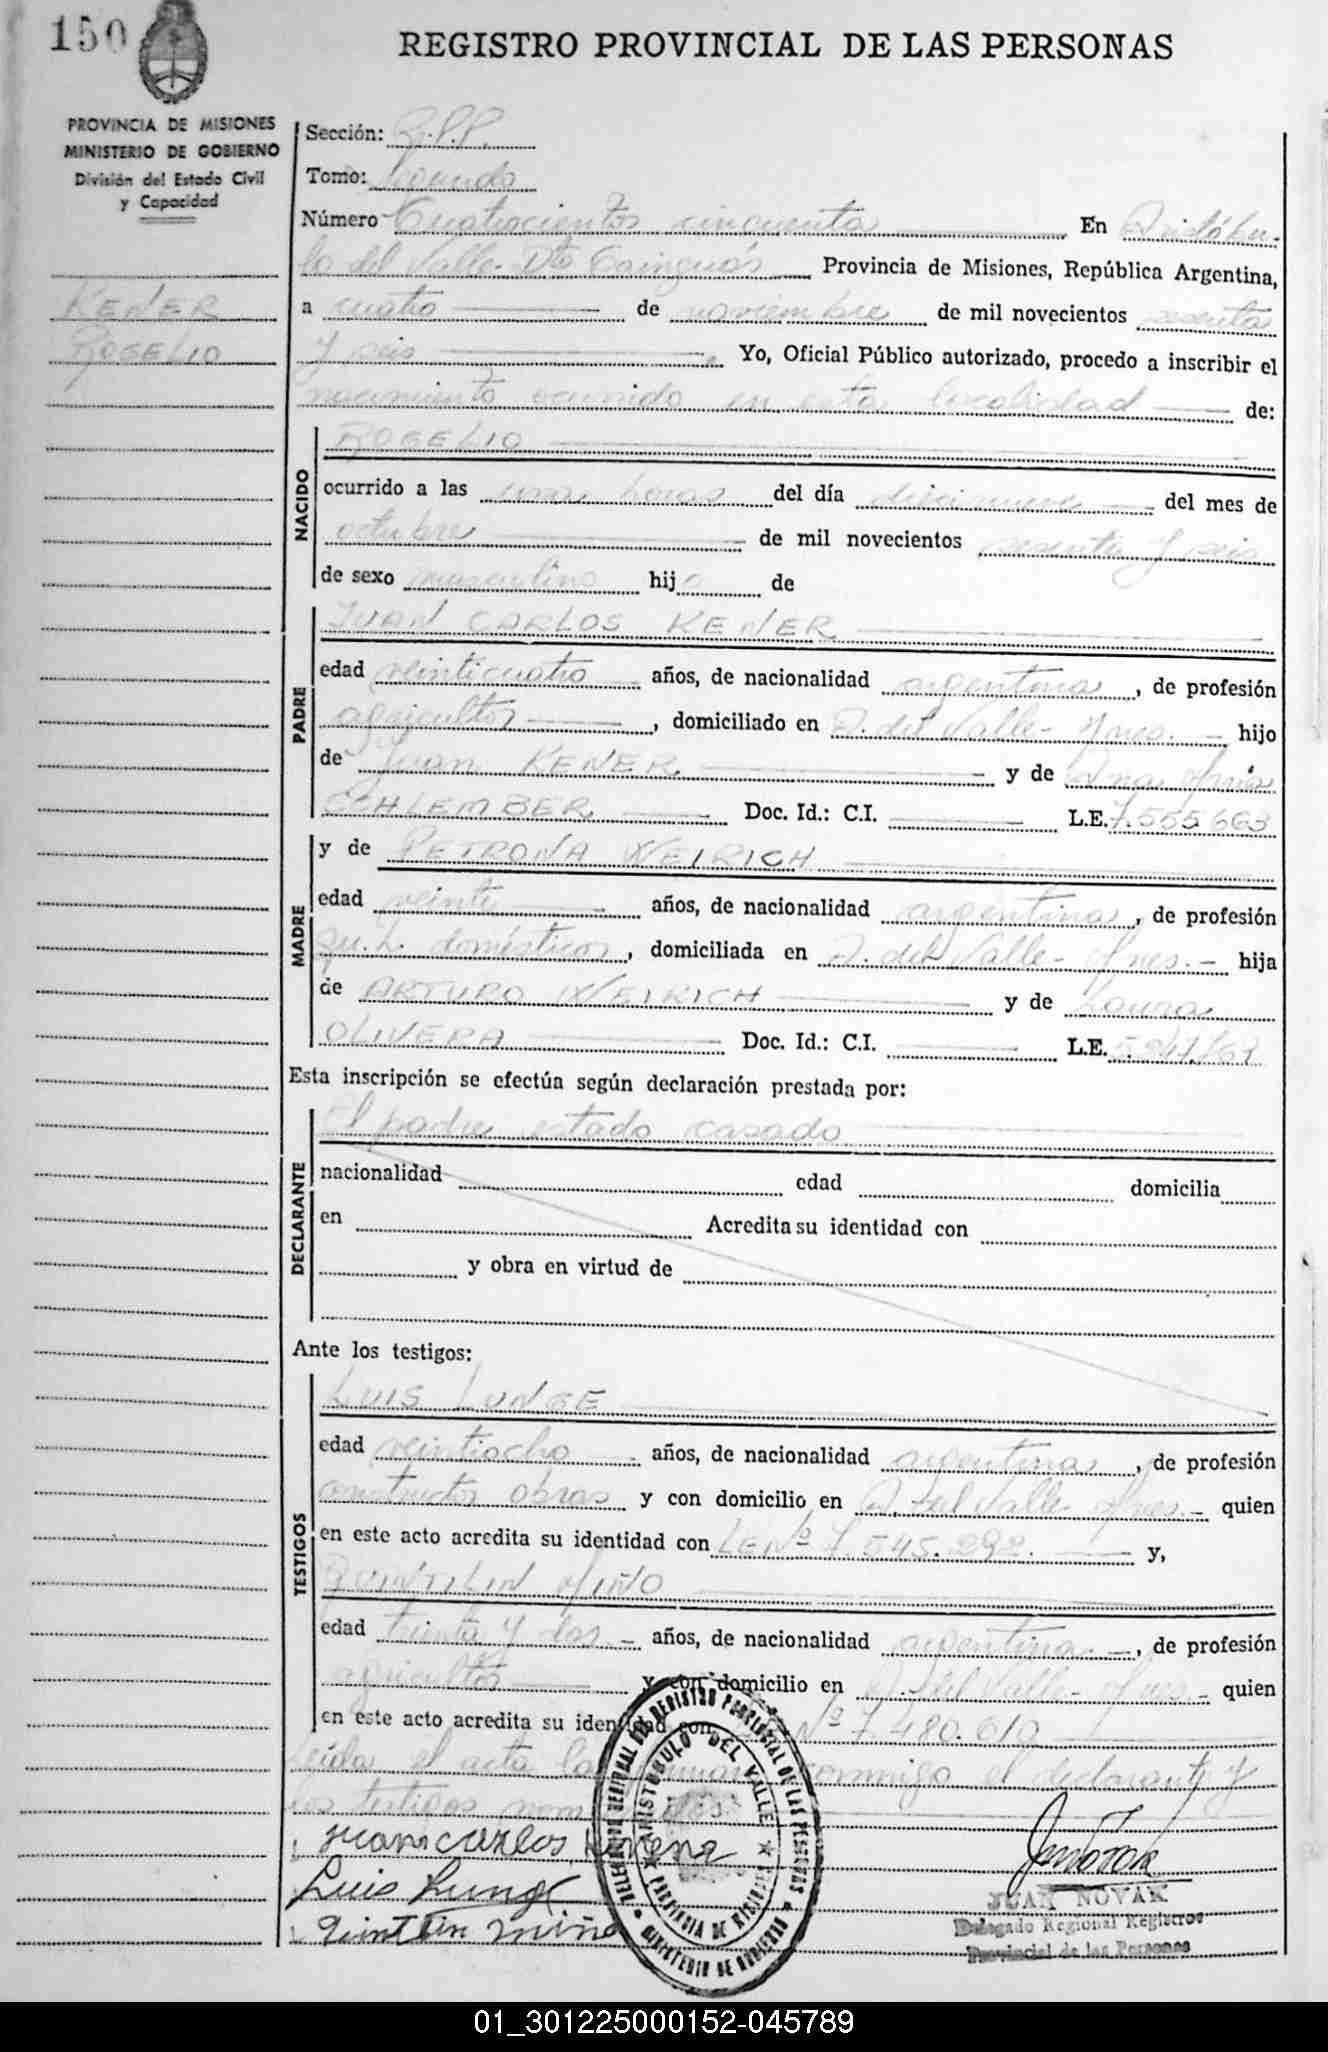 150
REGISTRO PROVINCIAL DE LAS PERSONAS
PROVINCIA DE MISIONES
MINISTERIO DE GOBIERNO
División del Estado Civil
y Capacidad
KENER
ROGELIO
Sección: R.P.P.
Tomo: Segundo
Número Cuatrocientos cincuenta En Aristóbu-
lo del Valle- Dto Cainguás Provincia de Misiones, República Argentina,
a cuatro de noviembre de mil novecientos sesenta
y seis Yo, Oficial Público autorizado, procedo a inscribir el
nacimiento ocurrido en esta localidad de:
NACIDO
ROGELIO
ocurrido a las una horas del día diecinueve del mes de
octubre de mil novecientos sesenta y seis
de sexo masculino hijo de
PADRE
JUAN CARLOS KENER
edad veinticuatro años, de nacionalidad argentina, de profesión
agricultor, domiciliado en A. del Valle- Mnes.- hijo
de Juan KENER y de Ana María
SCHLEMBER Doc. Id.: C.I. L.E. 7.555.663
MADRE
y de PETRONA WEIRICH
edad veinte años, de nacionalidad argentina, de profesión
qu. h. domésticos, domiciliada en A. del Valle- Mnes.- hija
de ARTURO WEIRICH y de Laura
OLIVERA Doc. Id.: C.I. L.E.
Esta inscripción se efectúa según declaración prestada por:
DECLARANTE
El padre estado casado
nacionalidad edad domicilia
en Acredita su identidad con
y obra en virtud de
Ante los testigos:
TESTIGOS
LUIS LUNGE
edad veintiocho años, de nacionalidad argentina, de profesión
constructor obras y con domicilio en A. del Valle- Mnes.- quien
en este acto acredita su identidad con LE Nº 7.545.292. y,
QUINTILIN MIÑO
edad treinta y dos.- años, de nacionalidad argentina.-, de profesión
agricultor y con domicilio en A. del Valle- Mnes.- quien
en este acto acredita su identidad con Nº 7.480.610
Leída el acta la firman conmigo el declarante y
los testigos
Juan carlos Kener
Luis Lunge
Quintilin miño
DELEGACION REGIONAL DEL REGISTRO PROVINCIAL DE LAS PERSONAS
MINISTERIO DE GOBIERNO
ARISTOBULO DEL VALLE
PROVINCIA DE MISIONES
JUAN NOVAK
Delegado Regional Registros
Provincial de las Personas
01_301225000152-045789